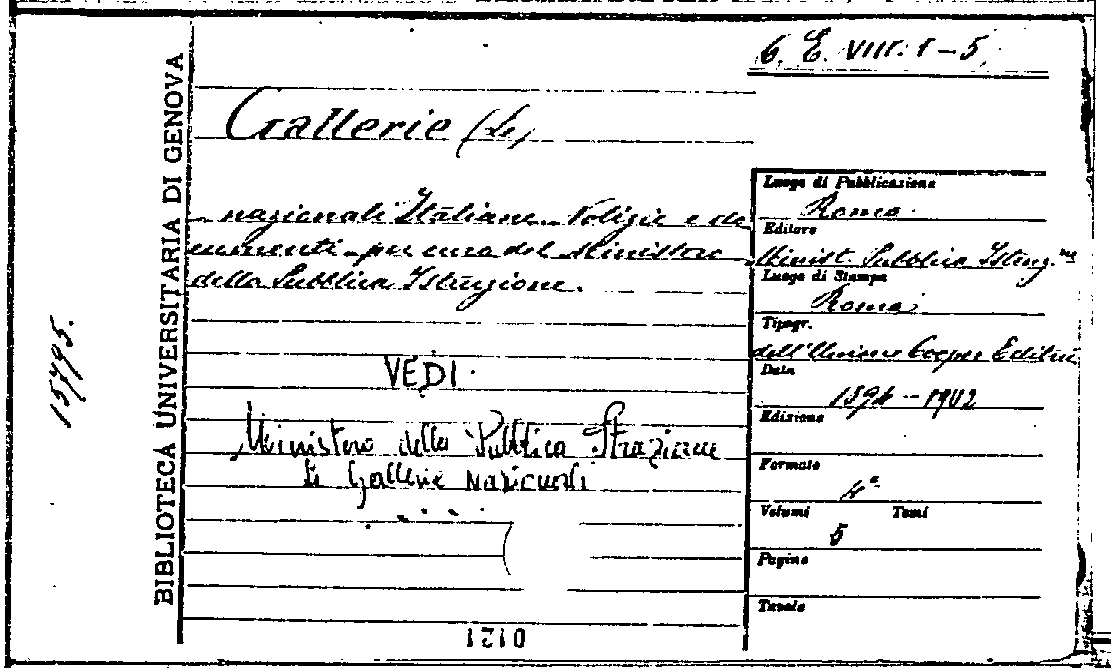 6. E. VIII. 1-5.
Gallerie (Le)
nazionali Italiane. Notizie e do
cumenti - per cura del Ministero
della Pubblica Istruzione.
VEDI.
Ministero della Pubblica Istruzione
Le Gallerie nazionali
.....
0121
BIBLIOTECA UNIVERSITARIA DI GENOVA
15795.
Luogo di Pubblicazione
Roma
Editore
Minist. Pubblica Istruz.ne
Luogo di Stampa
Roma
Tipogr.
dell'Unione Cooper. Editrice
Data
1894-1902
Edizione
Formato
4°
Volumi Tomi
5
Pagine
Tavole